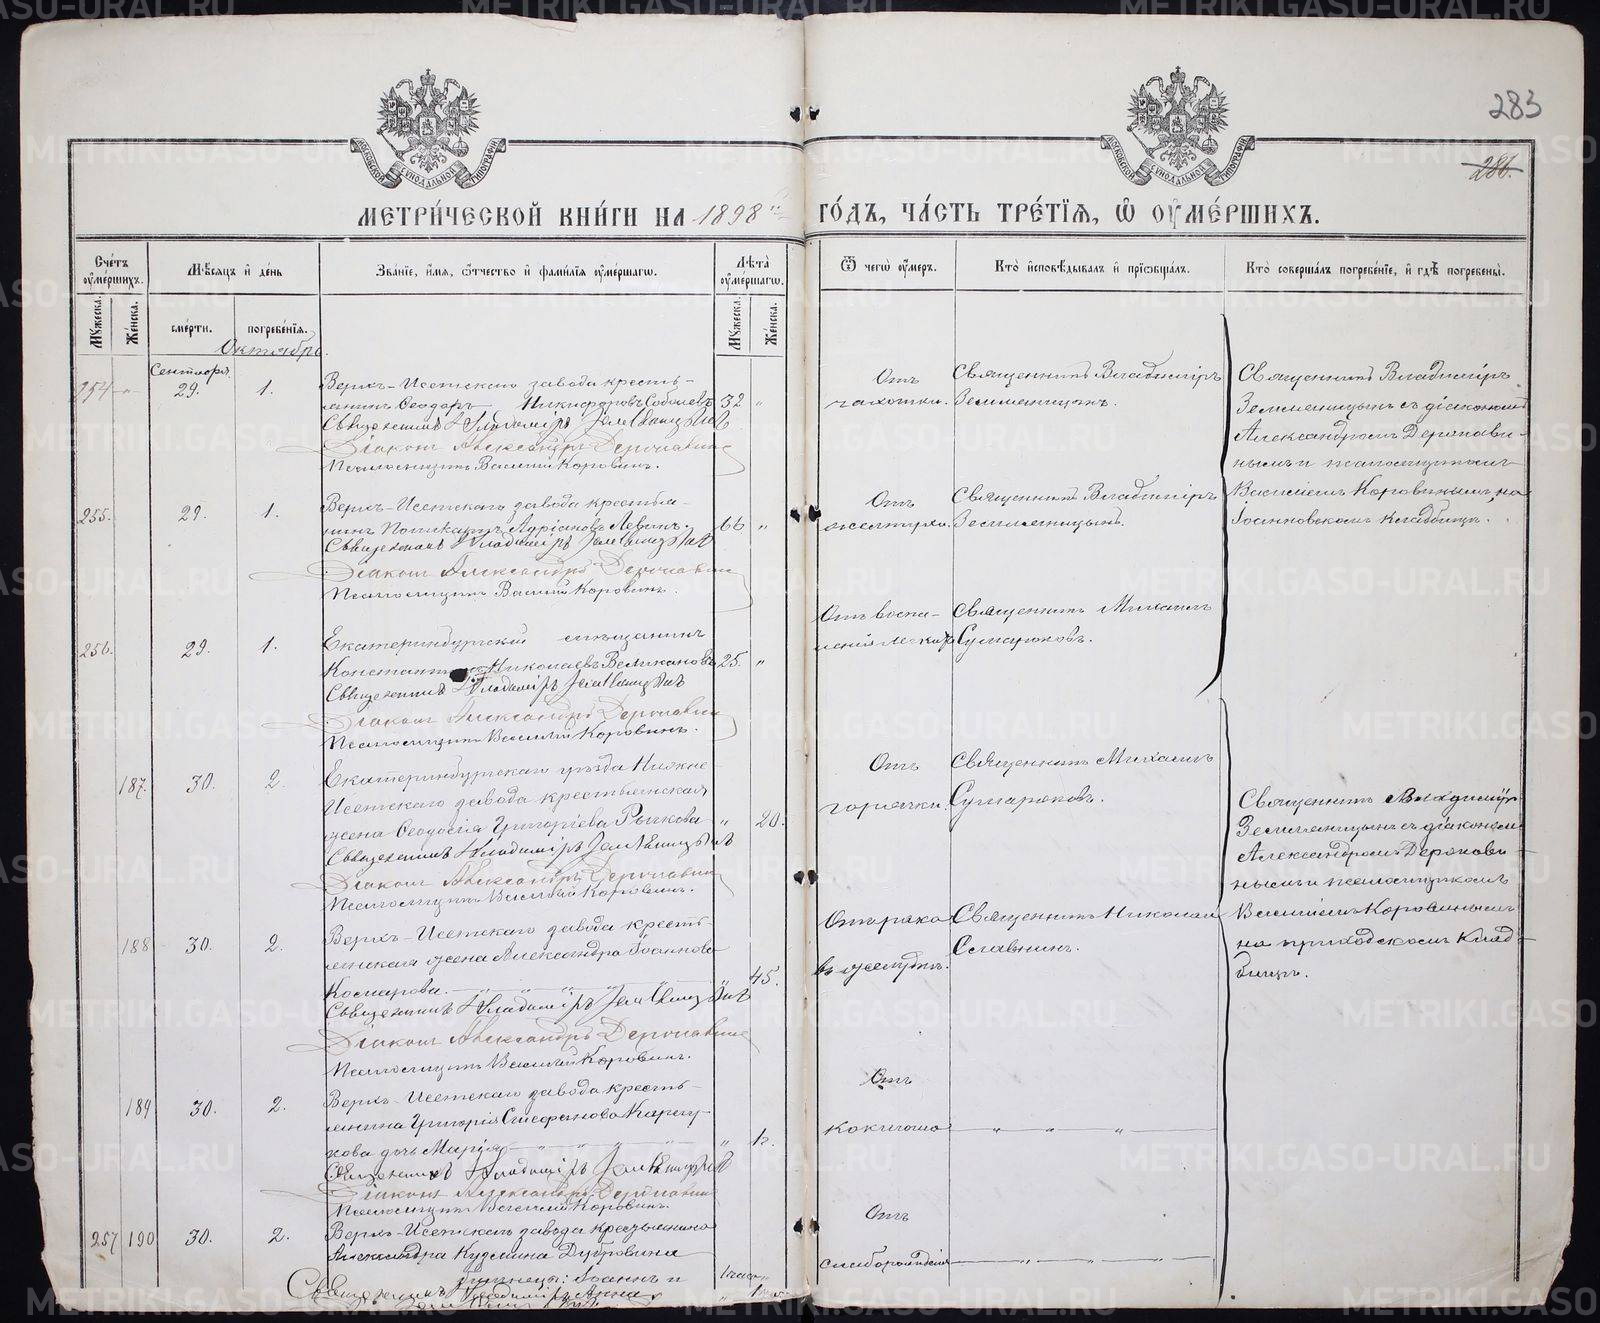 283
286.
МОСКОВСКОЙ СѴНОДАЛЬНОЙ ТИПОГРАФІИ
МОСКОВСКОЙ СѴНОДАЛЬНОЙ ТИПОГРАФІИ
МЕТРИ́ЧЕСКОЙ КНИ́ГИ НА 1898 й ГО́ДЪ, ЧА́СТЬ ТРЕ́ТІѦ, Ѡ ОУМЕ́РШИХЪ.
Сче́тъ оуме́ршихъ.
Мꙋ́жеска.
Же́нска.
Мѣ́сяцъ и де́нь
сме́рти.
погребе́нїѧ.
Зва́нїе, и́мѧ, ѻ́тчество и фами́лїѧ оуме́ршагѡ.
Лѣ́та оуме́ршагѡ.
Мꙋ́жеска.
Же́нска.
Ѿ чегѡ̀ оу́меръ.
Кто̀ исповѣ́дывалъ и прїѡбща́лъ.
Кто̀ соверша́лъ погребе́нїе, и гдѣ̀ погребены̀.
Октябрь.
Сентябрь
254 „ 29. 1. Верхъ-Исетскаго завода кресть-
янинъ Ѳеодоръ Никифоровъ Соболевъ 32 „
Священникъ Владимiръ Земляницынъ
Дiаконъ Александръ Дерновинъ
Псаломщикъ Василiй Коровинъ.
Отъ чахотки.
Священникъ Владимiръ
Земляницынъ.
Священникъ Владимiръ
Земляницынъ съ дiакономъ
Александромъ Дернови-
нымъ и псаломщикомъ
Василiемъ Коровинымъ, на
Iоанновскомъ кладбищѣ.
255. 29. 1. Верхъ-Исетскаго завода крестья-
нинъ 66 „
Священникъ Владимiръ Земляницынъ
Дiаконъ Александръ Дерновинъ
Псаломщикъ Василiй Коровинъ.
Отъ
Священникъ Владимiръ
Земляницынъ.
256. 29. 1. Екатеринбургскiй мѣщанинъ
Константинъ Николаевъ Великановъ 25. „
Священникъ Владимiръ Земляницынъ
Дiаконъ Александръ Дерновинъ
Псаломщикъ Василiй Коровинъ.
Отъ воспа-
ленiя легкихъ
Священникъ Михаилъ
Сумароковъ.
187. 30. 2. Екатеринбургскаго уѣзда Нижне-
Исетскаго завода крестьянская
жена Ѳеодосiя Григорiева Рычкова „ 20.
Священникъ Владимiръ Земляницынъ
Дiаконъ Александръ Дерновинъ
Псаломщикъ Василiй Коровинъ.
Отъ горячки.
Священникъ Михаилъ
Сумароковъ.
Священникъ Владимiръ
Земляницынъ съ дiакономъ
Александромъ Дернови-
нымъ и псаломщикомъ
Василiемъ Коровинымъ
на приходскомъ клад-
бищѣ.
188 30. 2. Верхъ-Исетскаго завода кресть-
янская жена Александра Iоаннова
Космарова. „ „ „ „ 45.
Священникъ Владимiръ Земляницынъ
Дiаконъ Александръ Дерновинъ
Псаломщикъ Василiй Коровинъ.
Отъ рака
въ желудкѣ.
Священникъ Николай
Славнинъ.
189 30. 2. Верхъ-Исетскаго завода кресть-
янина Григорiя Стефанова
дочь Марiя „ „ „ „ „
Священникъ Владимiръ Земляницынъ
Дiаконъ Александръ Дерновинъ
Псаломщикъ Василiй Коровинъ.
Отъ
коклюша „ „ „
257 190 30. 2. Верхъ-Исетскаго завода крестьянина
Александра Кузмина Дубровина
близнецы: Iоаннъ и 1 часъ „
Анна
Священникъ Владимiръ
Земляницынъ
Отъ
слаборожденiя „ „ „
METRIKI.GASO-URAL.RU